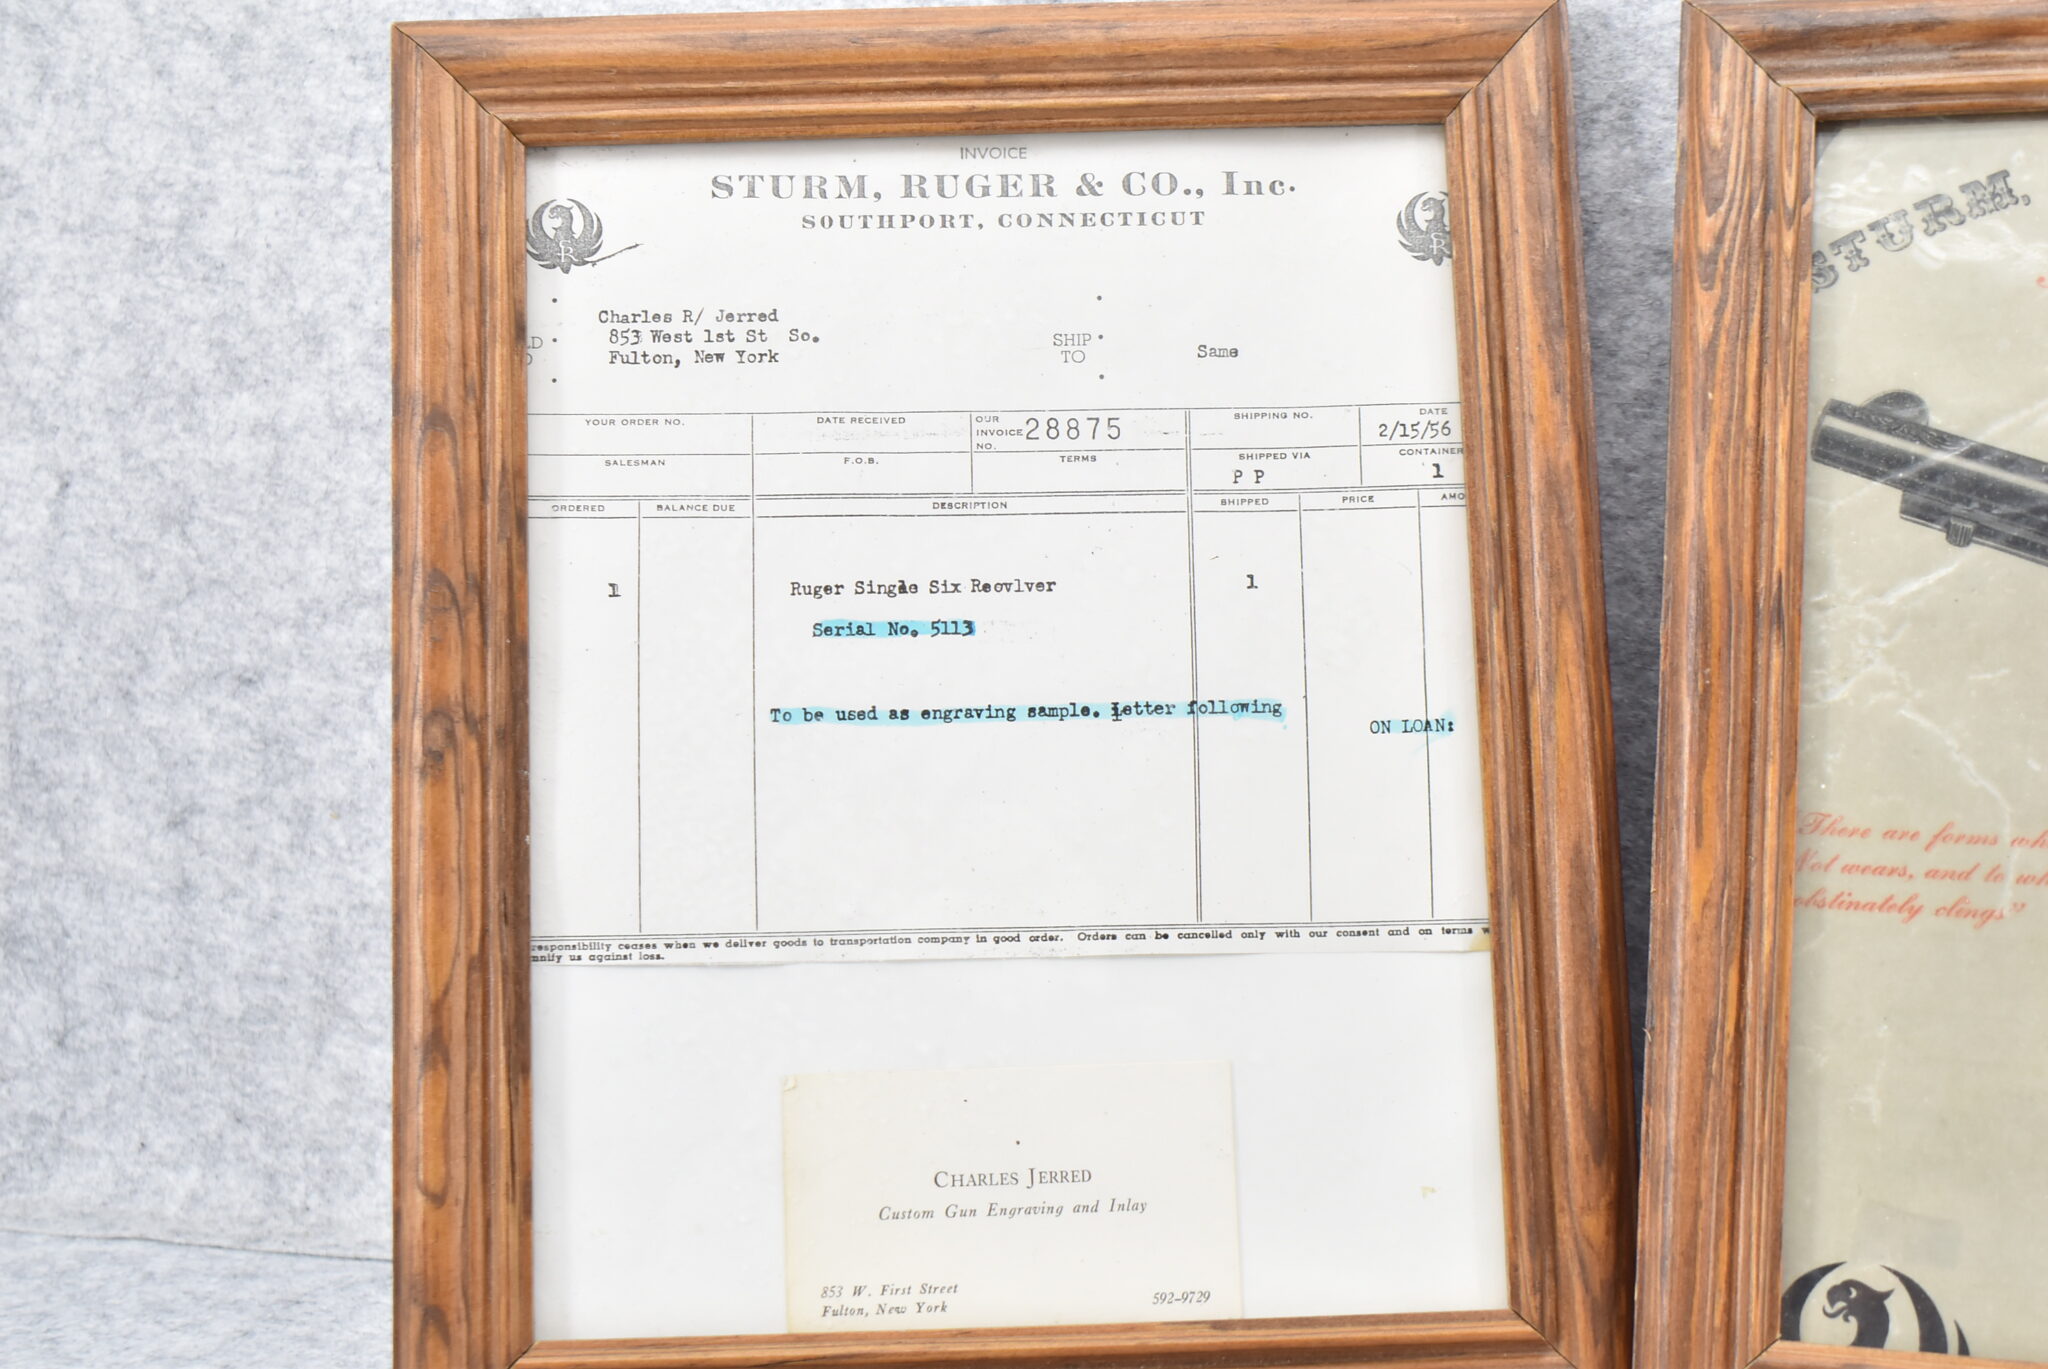 INVOICE
STURM, RUGER & CO., Inc.
SOUTHPORT, CONNECTICUT
Charles R/ Jerred
853 West 1st St So.
Fulton, New York
SHIP
TO
Same
YOUR ORDER NO.
DATE RECEIVED
OUR
INVOICE
NO.
28875
SHIPPING NO.
DATE
2/15/56
SALESMAN
F.O.B.
TERMS
SHIPPED VIA
P P
CONTAINER
1
ORDERED
BALANCE DUE
DESCRIPTION
SHIPPED
PRICE
AMO
1
Ruger Single Six Reovlver
1
Serial No. 5113
To be used as engraving sample. Letter following
ON LOAN:
responsibility ceases when we deliver goods to transportation company in good order. Orders can be cancelled only with our consent and on terms w
mnify us against loss.
CHARLES JERRED
Custom Gun Engraving and Inlay
853 W. First Street
Fulton, New York
592-9729
STURM,
"There are forms wh
Not wears, and to wh
obstinately clings"